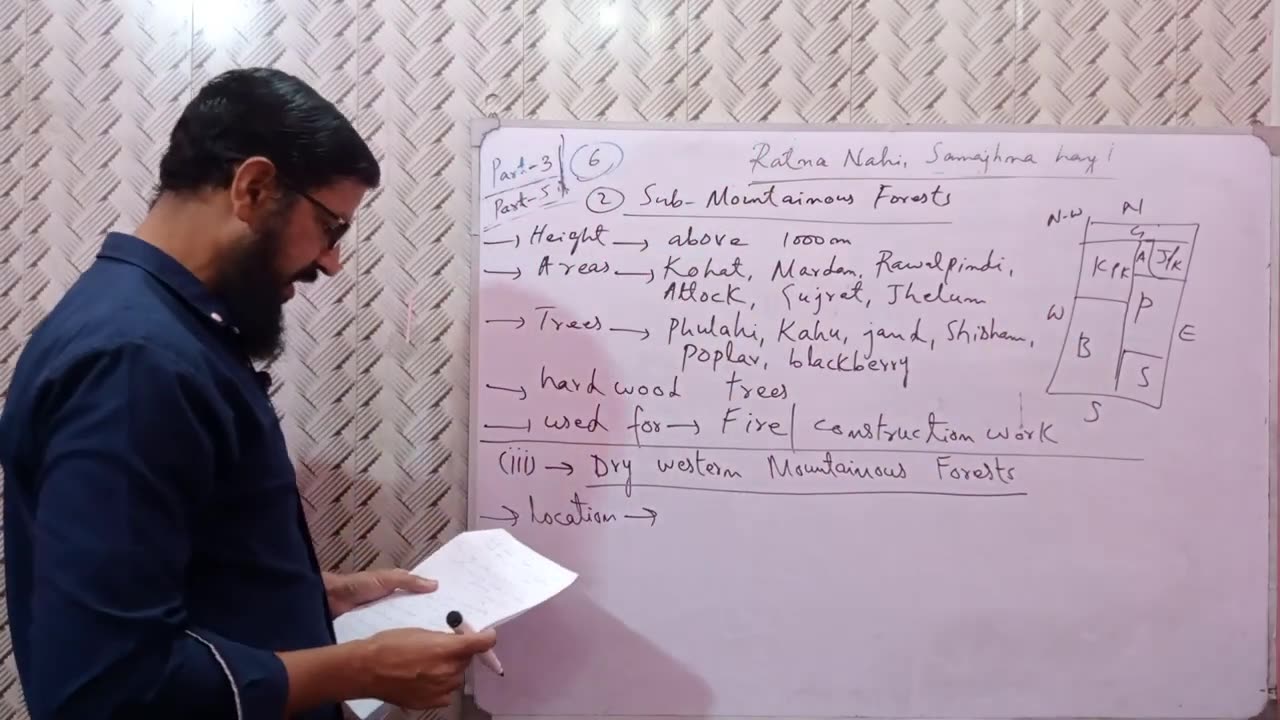 Part-3
Part-5
6
Ratna Nahi, Samajhna hay!
② Sub-Mountainous Forests
→ Height → above 1000m
→ Areas → Kohat, Mardan, Rawalpindi,
Attock, Gujrat, Jhelum
→ Trees → Phulahi, Kahu, jand, Shisham,
Poplar, blackberry
→ hard wood trees
→ used for → Fire/construction work
(iii) → Dry western Mountainous Forests
→ Location →
N-W N
G
KPK A J/K
W P E
B S
S